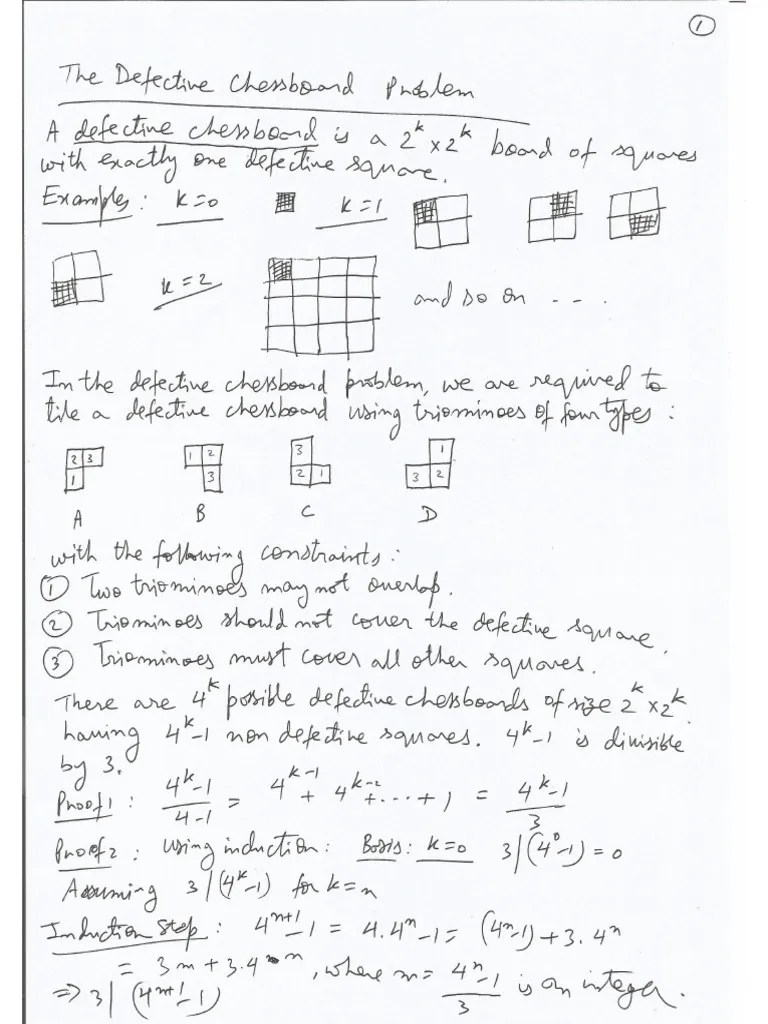 ①
The Defective Chessboard Problem
A defective chessboard is a 2^k × 2^k board of squares
with exactly one defective square.
Examples : k=0 k=1
k=2 and so on - - - .
In the defective chessboard problem, we are required to
tile a defective chessboard using triominoes of four types :
2 3 1 2 3 1
1 3 2 1 3 2
A B C D
with the following constraints :
① Two triominoes may not overlap.
② Triominoes should not cover the defective square.
③ Triominoes must cover all other squares.
There are 4^k possible defective chessboards of size 2^k × 2^k.
having 4^k-1 non defective squares. 4^k-1 is divisible
by 3.
Proof 1 : (4^k-1)/(4-1) = 4^(k-1) + 4^(k-2) + ... + 1 = (4^k-1)/3
Proof 2 : Using induction : Basis : k=0 3|(4^0-1) = 0
Assuming 3|(4^k-1) for k=n
Induction Step : 4^(n+1)-1 = 4.4^n-1 = (4^n-1) + 3.4^n
= 3m + 3.4^n, where m = (4^n-1)/3 is an integer.
⇒ 3|(4^(n+1)-1)